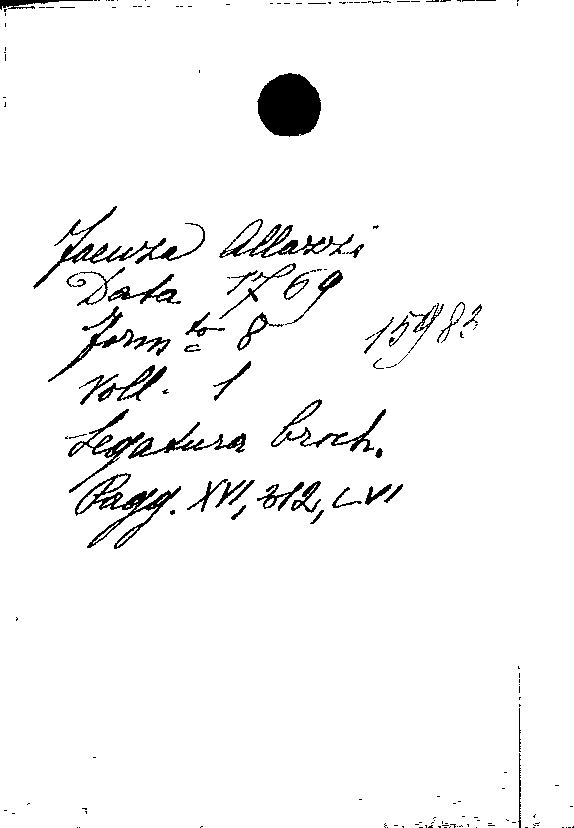 Faenza Allazzi
Data 1769
Form.to 8 15983
Voll. 1
Legatura broch.
Pagg. XVI, 312, LVI